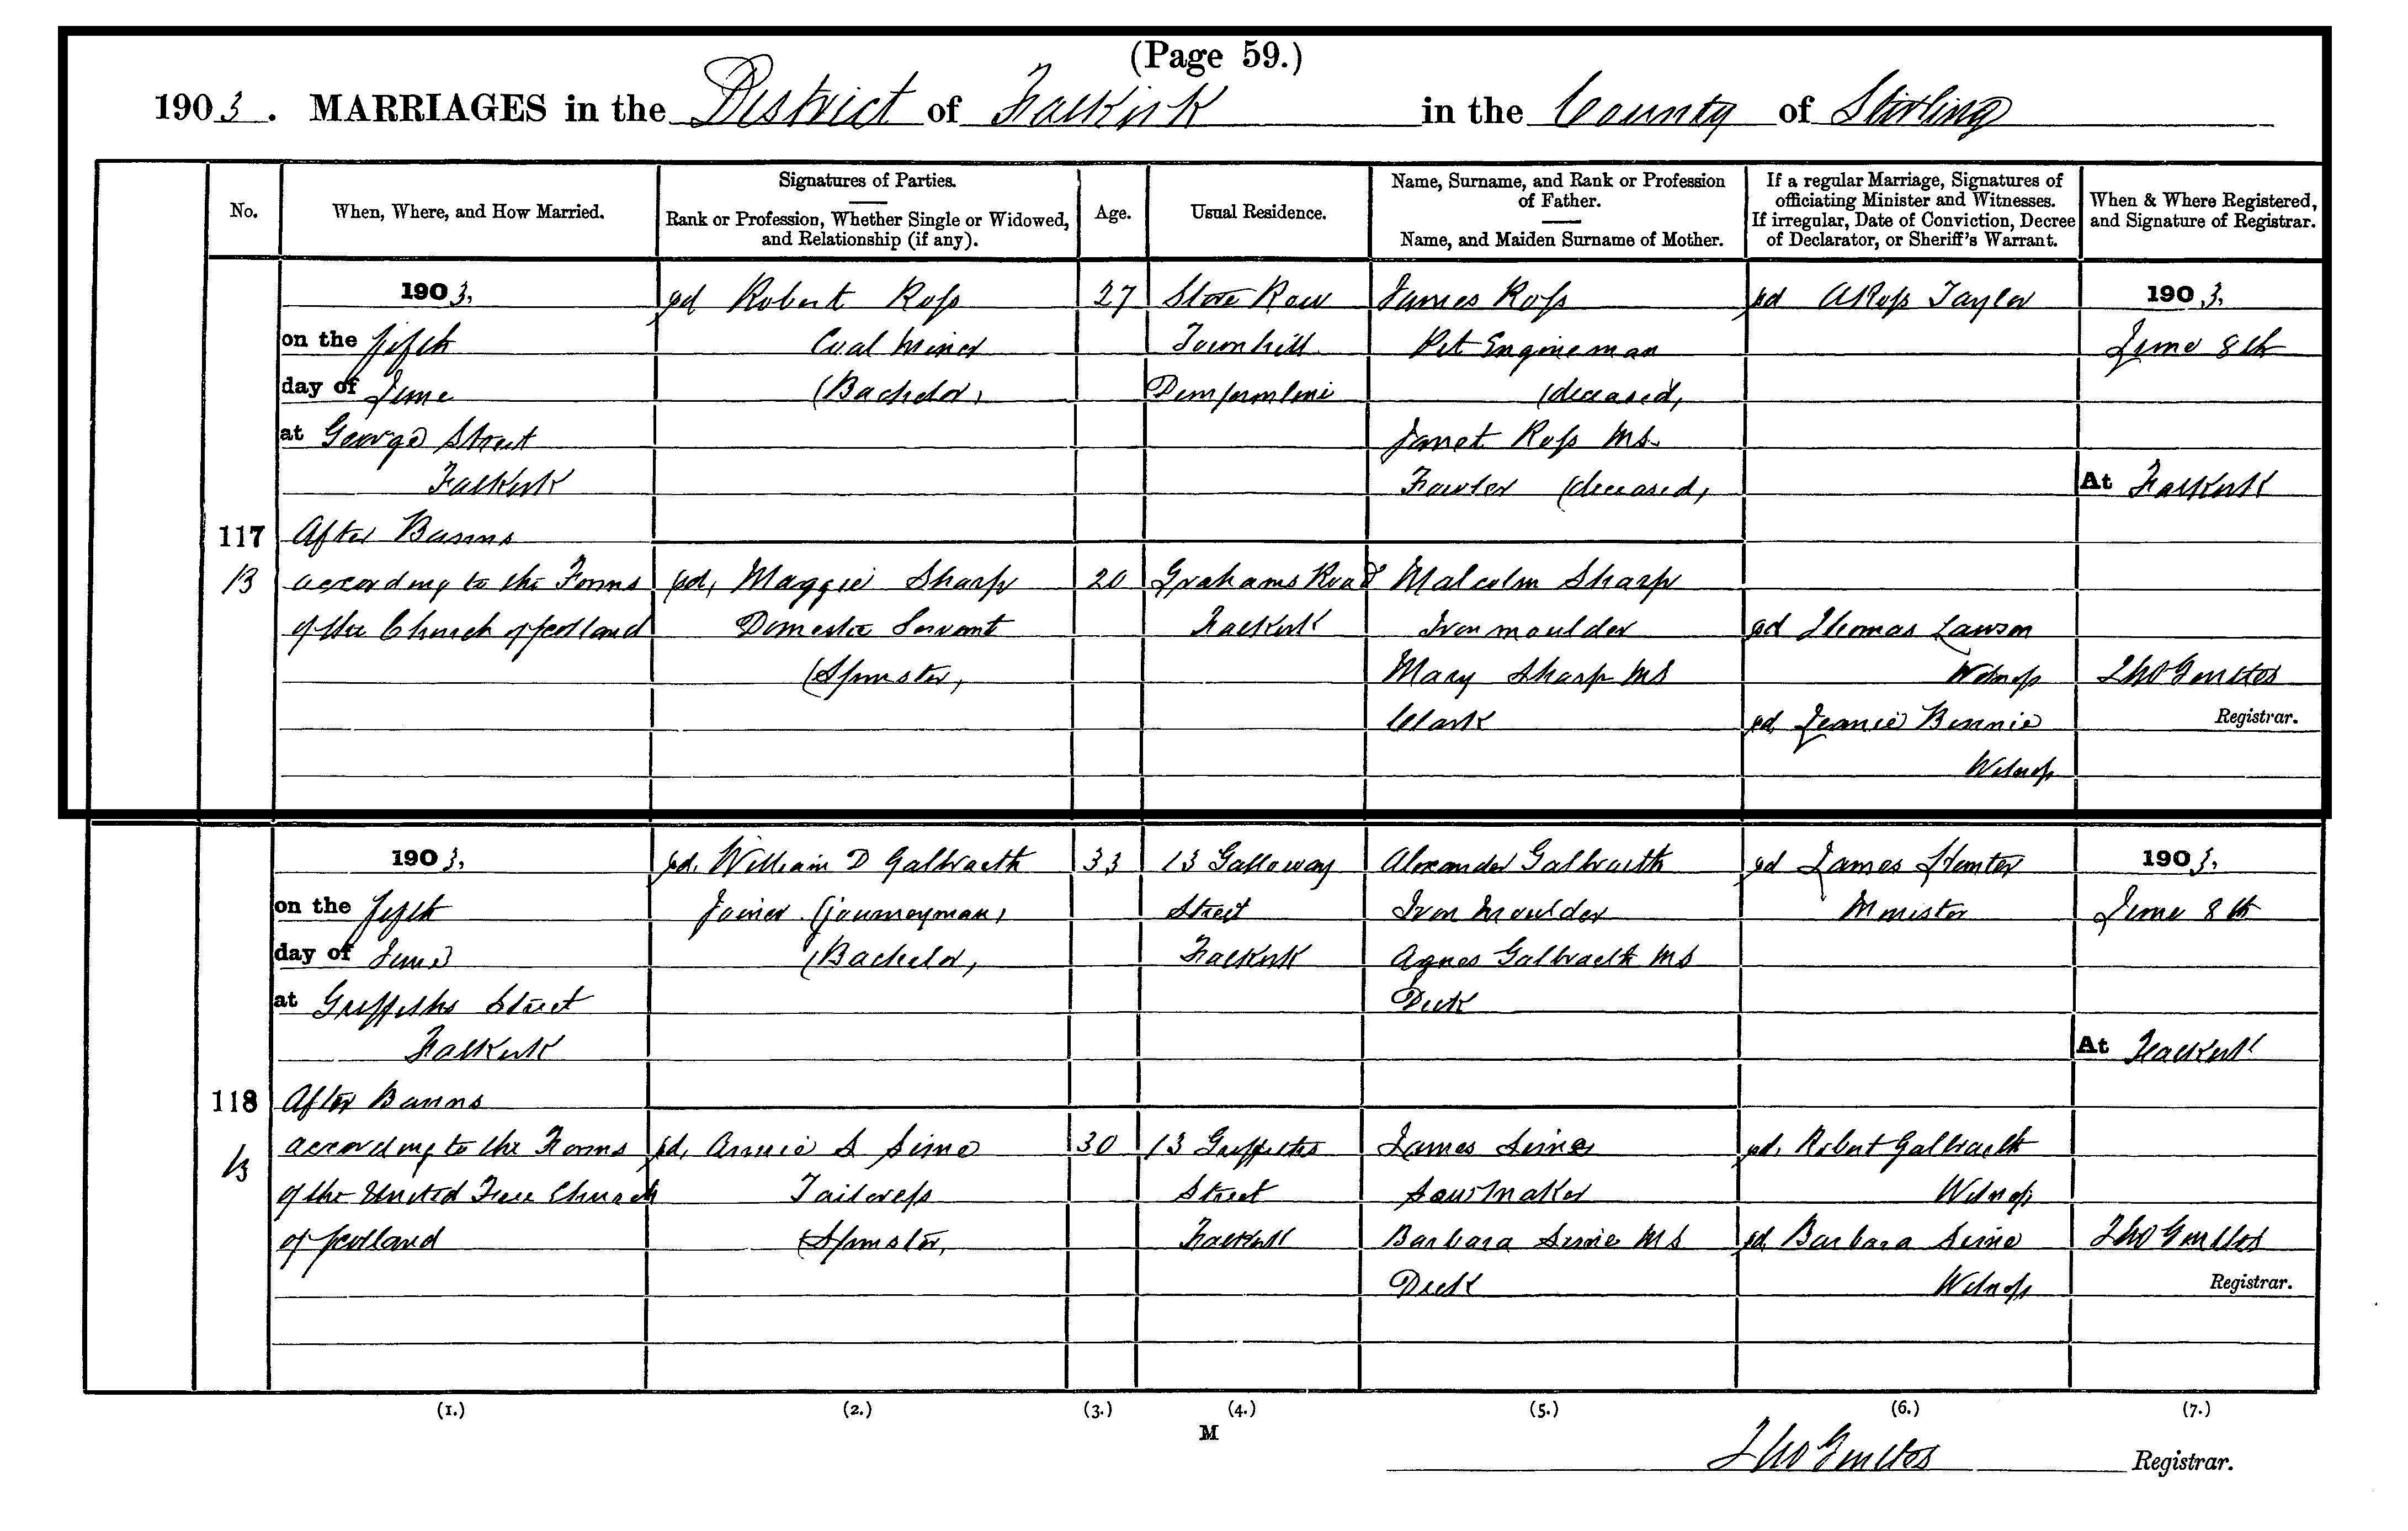 (Page 59.)
1903. MARRIAGES in the District of Falkirk in the County of Stirling
No.
When, Where, and How Married.
Signatures of Parties.
Rank or Profession, Whether Single or Widowed,
and Relationship (if any).
Age.
Usual Residence.
Name, Surname, and Rank or Profession
of Father.
Name, and Maiden Surname of Mother.
If a regular Marriage, Signatures of
officiating Minister and Witnesses.
If irregular, Date of Conviction, Decree
of Declarator, or Sheriff's Warrant.
When & Where Registered,
and Signature of Registrar.
117
B
1903.
on the fifth
day of June
at George Street
Falkirk
After Banns
according to the Forms
of the Church of Scotland
sd Robert Ross
Coal Miner
(Bachelor)
27
Store Row
Townhill
Dunfermline
James Ross
Pit Engineman
(deceased)
Janet Ross MS.
Fowler (deceased)
sd, Maggie Sharp
Domestic Servant
(Spinster)
20
Grahams Road
Falkirk
Malcolm Sharp
Iron moulder
Mary Sharp MS
Clark
sd A Ross Taylor
sd Thomas Lawson
Witness
sd Jeanie Binnie
Witness
1903.
June 8th
At Falkirk
Registrar.
118
B
1903.
on the fifth
day of June
at Griffiths Street
Falkirk
After Banns
according to the Forms
of the United Free Church
of Scotland
sd. William D Galbraith
Joiner (journeyman)
(Bachelor)
33
13 Galloway
Street
Falkirk
Alexander Galbraith
Iron Moulder
Agnes Galbraith MS
Dick
sd, Annie S Sime
Tailoress
(Spinster)
30
13 Griffiths
Street
Falkirk
James Sime
Saw Maker
Barbara Sime MS
Dick
sd James Hunter
Minister
sd. Robert Galbraith
Witness
sd Barbara Sime
Witness
1903.
June 8th
At Falkirk
Registrar.
(1.) (2.) (3.) (4.) (5.) (6.) (7.)
M
Registrar.